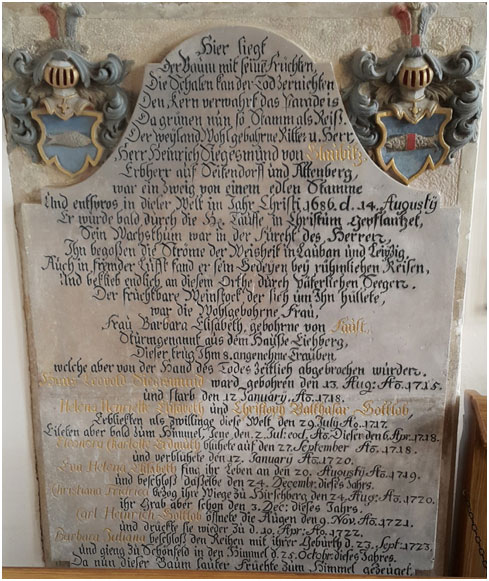 Hier liegt
Der Baum mit seine Früchten,
Die Schalen kan der Tod zernichten
Den Kern verwahrt das Paradeis
Da grünen nun so Stamm als Reiß.
Der weyland Wohlgebohrne Ritter u. Herr,
Herr Heinrich Siegesmund von
Erbherr auf Seitendorff und Altenberg,
war ein Zweig von einem edlen Stamme
Und entsproß in dieser Welt im Jahr Christi 1686. d. 14. Augusty
Er wurde bald durch die H. Tauffe in Christum gepflantzet,
Sein Wachsthum war in der Furcht des Herren,
Ihn begoßen die Ströme der Weisheit in Lauban und Leipzig,
Auch in fremder Lufft fand er sein Gedeyen bey rühmlichen Reisen,
Und beklieb endlich an diesem Orthe durch Väterlichen Seegen.
Der fruchtbare Weinstock der sich um Ihn hüllete,
war die Wohlgebohrne Frau,
Frau Barbara Elisabeth, gebohrne von
Sturmgenannt aus dem Hauße Eichberg,
Dieser trug Ihm 8. angenehme Trauben
welche aber von der Hand des Todes zeitlich abgebrochen wurden.
Leopold Siegismund ward gebohren den 13. Aug: Ao. 1715.
und starb den 12 January. Ao. 1718.
Helena Henriette Elisabeth und Christoph Balthasar Gottlob
Erbliesten als Zwillinge diese Welt den 29. July Ao. 1717.
Eileten aber bald zum Himmel, Jene den 2. Jul: eod. Ao. Dieser den 6. Apr. 1718.
Eleonora Charlotte Elisabeth blühete auf den 27. September Ao. 1718.
und verblühete den 12. January Ao. 1720.
Eva Helena Elisabeth fing ihr Leben an den 20. Augusty Ao. 1719.
und beschloß daßelbe den 24. Decembr. dieses Jahrs.
Christiana Friderica bezog ihre Wiege zu Hirschberg den 24. Aug: Ao. 1720.
ihr Grab aber schon den 3. Dec: dieses Jahrs.
Carl Heinrich Gottlob öfnete die Augen den 9. Nov. Ao. 1721.
und drückte sie wieder zu d. 10. Apr: Ao. 1722.
Barbara Juliana beschloß den Reihen mit ihrer Geburth d. 23. Sept. 1723,
und gieng zu Schönfeld in den Himmel d. 25. Octobr. dieses Jahres.
Da nun dieser Baum lauter Früchte zum Himmel gezeuget,